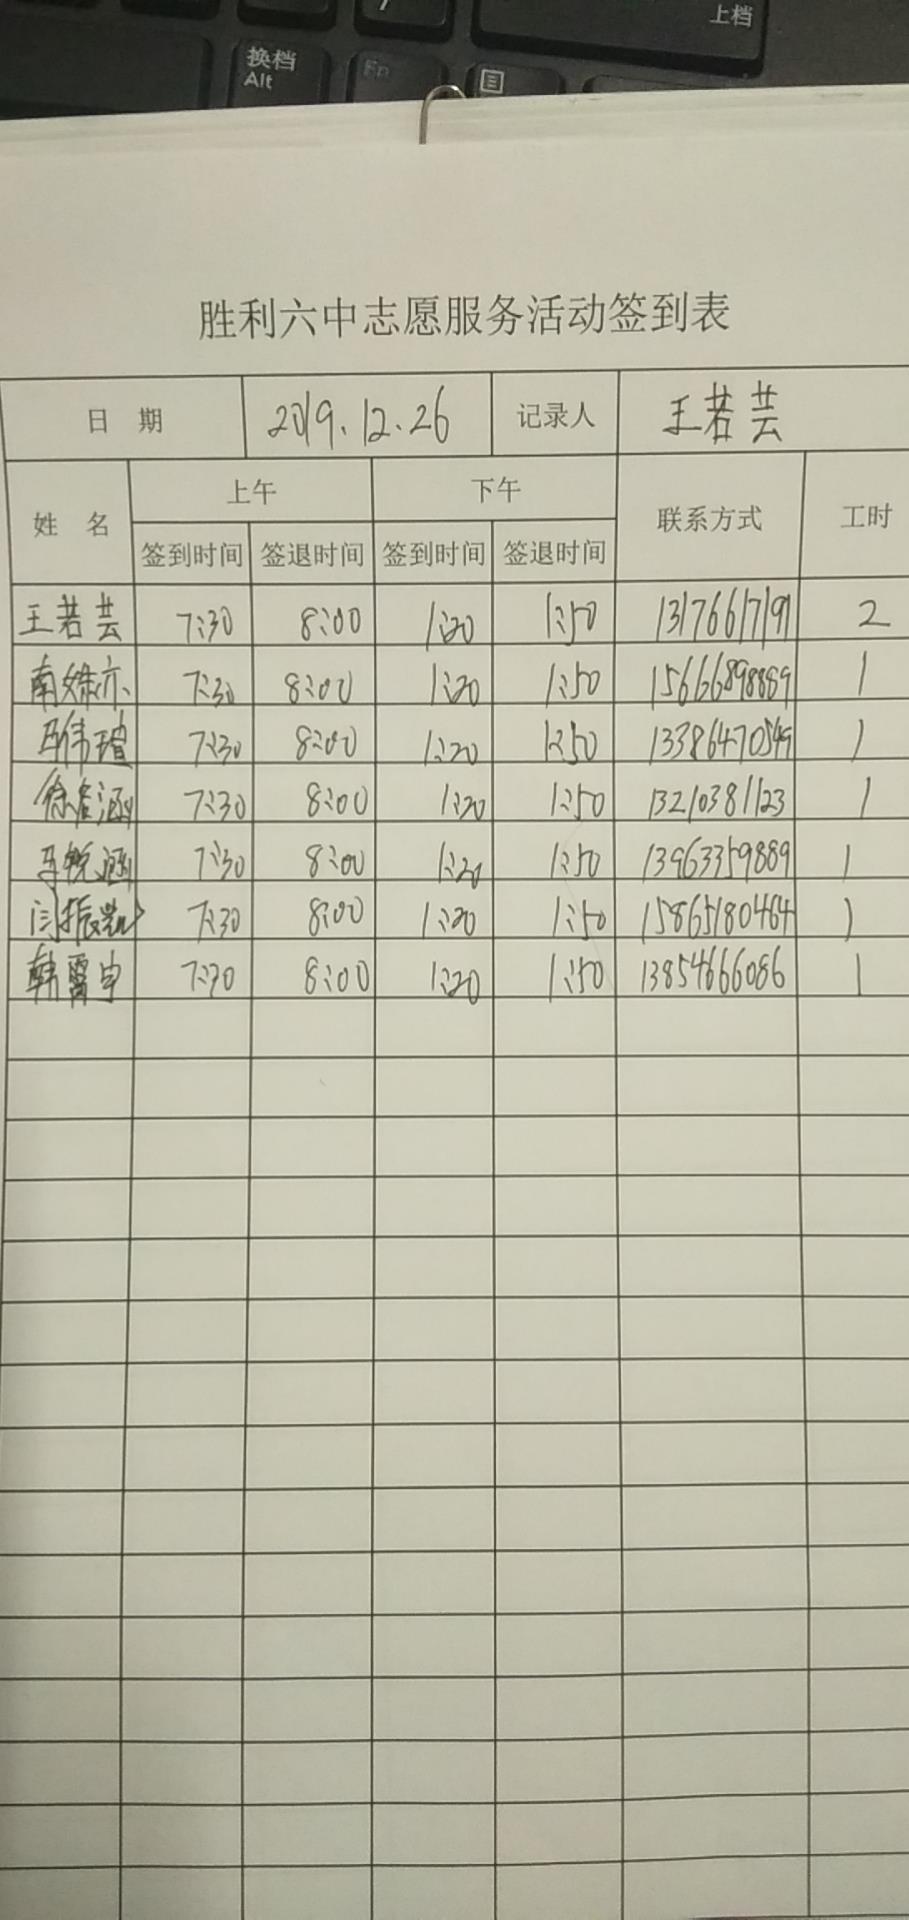 上档
换档
Alt
Fn
胜利六中志愿服务活动签到表
日 期 2019.12.26 记录人 王若芸
姓 名 上午 下午 联系方式 工时
签到时间 签退时间 签到时间 签退时间
王若芸 7:30 8:00 1:20 1:50 13176617191 2
南姝亦 7:30 8:00 1:20 1:50 15666898889 1
7:30 8:00 1:20 1:50 13386470549 1
7:30 8:00 1:20 1:50 13210381123 1
7:30 8:00 1:20 1:50 13963359889 1
闫振凯 7:30 8:00 1:20 1:50 15865180464 1
7:30 8:00 1:20 1:50 13854666086 1